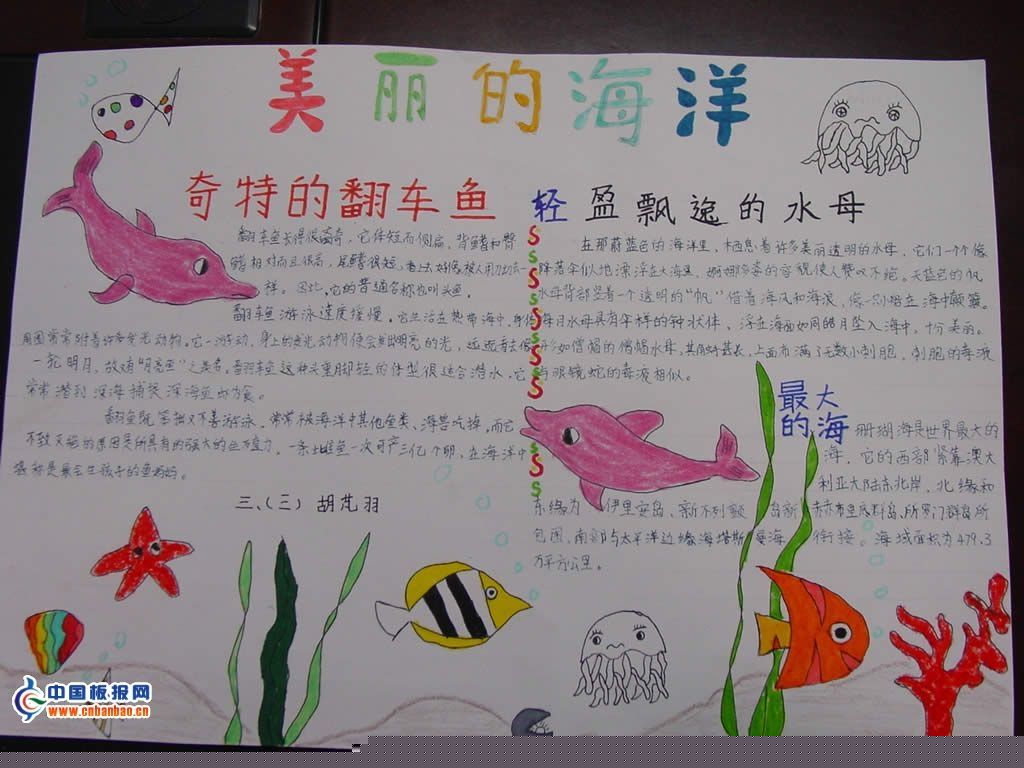 美丽的海洋
奇特的翻车鱼
翻车鱼长得很离奇，它体短而侧扁，背鳍和臀
鳍相对而且很高，尾鳍很短，看上去好像被人用刀切去一
样。因此，它的普通名称也叫头鱼。
翻车鱼游泳速度缓慢，它生活在热带海中，身体
周围常常附着许多发光动物，它一游动，身上的发光动物便会发出明亮的光，远远看去像
一轮明月，故有"月亮鱼"之美名。翻车鱼这种头重脚轻的体型很适合潜水，它
常常潜到深海捕捉深海鱼虾为食。
翻车鱼既笨拙又不善游泳，常常被海洋中其他鱼类、海兽吃掉。而它
不致灭绝的原因是所具有的强大的生殖力，一条雌鱼一次可产三亿个卵，在海洋中
堪称是最会生孩子的鱼妈妈。
三、(三) 胡芃羽
轻盈飘逸的水母
在那蔚蓝色的海洋里，栖息着许多美丽透明的水母，它们一个个像
降落伞似地漂浮在大海里，婀娜多姿的容貌使人赞叹不绝。天蓝色的帆
水母背部竖着一个透明的"帆"借着海风和海浪，像一只小船在海中颠簸。
海月水母具有伞样的钟状体，浮在海面如同皓月坠入海中，十分美丽。
形如僧帽的僧帽水母，其触手甚长，上面布满了无数小刺胞，刺胞的毒液
与眼镜蛇的毒液相似。
最大
的海
珊瑚海是世界最大的
海，它的西部紧靠澳大
利亚大陆东北岸，北缘和
东缘为伊里安岛、新不列颠岛
所罗门群岛所
包围，南部与太平洋边缘海塔斯曼海衔接。海域面积为479.3
万平方公里。
中国板报网
www.cnbanbao.cn